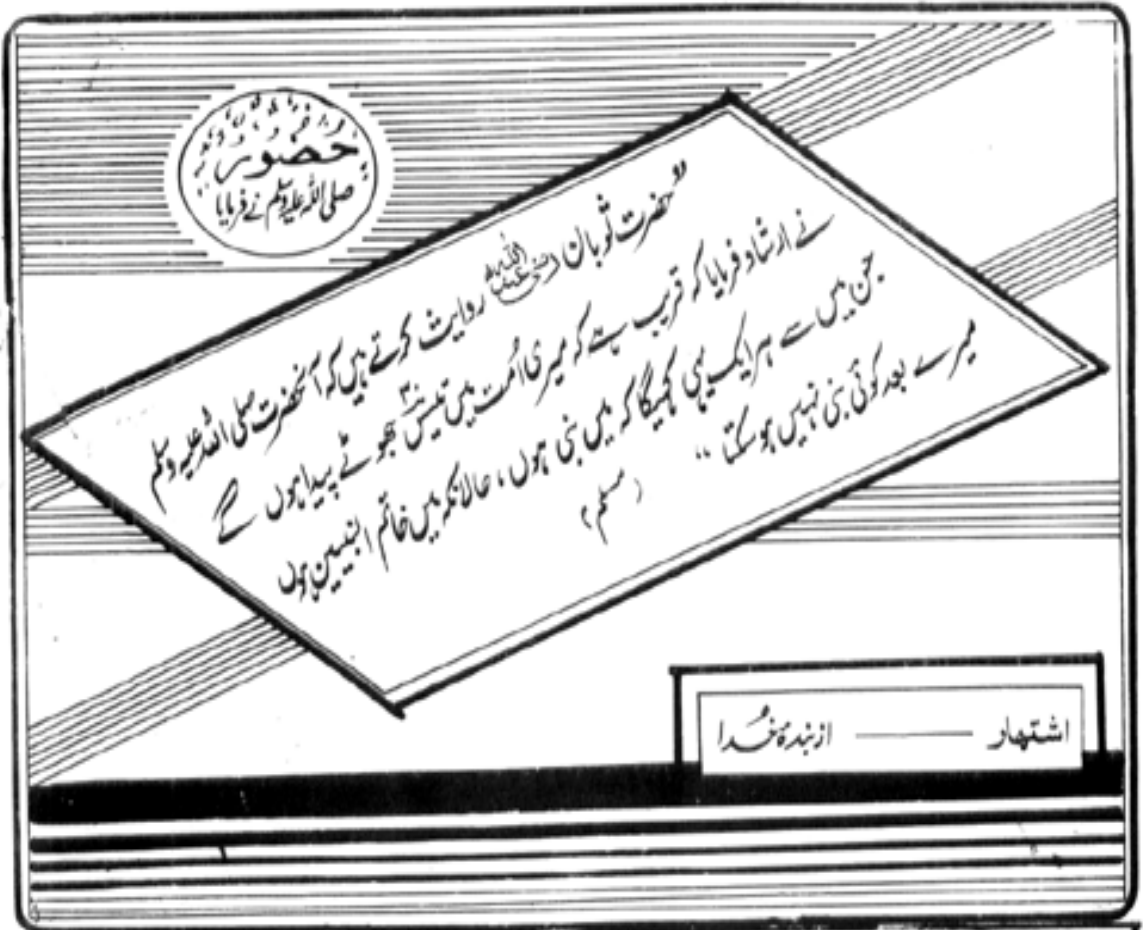 حضور
صلی اللہ علیہ وسلم نے فرمایا
”حضرت ثوبان رضی اللہ عنہ روایت کرتے ہیں کہ آنحضرت صلی اللہ علیہ وسلم
نے ارشاد فرمایا کہ قریب ہے کہ میری اُمت میں تیس ۳۰ جھوٹے پیدا ہوں گے
جن میں سے ہر ایک یہی کہیگا کہ میں نبی ہوں، حالانکہ میں خاتم النبیین ہوں
میرے بعد کوئی نبی نہیں ہو سکتا“
(مسلم)
اشتہار ——— از بندۂ خُدا